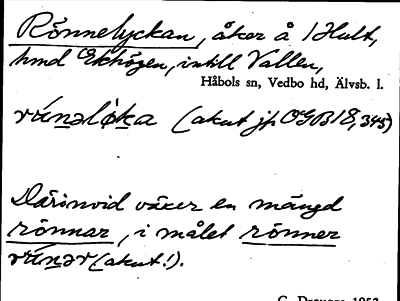 Rönnelyckan, åker å 1 Hult,
hmd Ekhögen, intill Vallen,
Håbols sn, Vedbo hd, Älvsb. l.
(akut jfr OGB 18, 345)
Därinvid växer en mängd
rönnar, i målet rönner
(akut!).